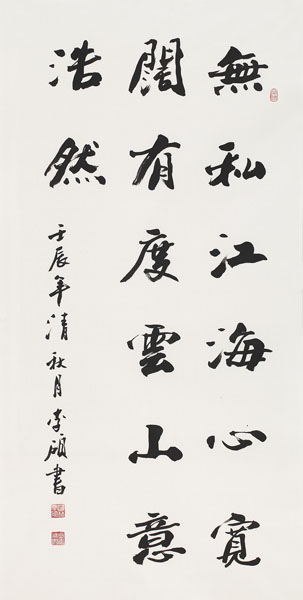 無私江海心寬
闊有度雲山意
浩然
壬辰年清秋月李碩書